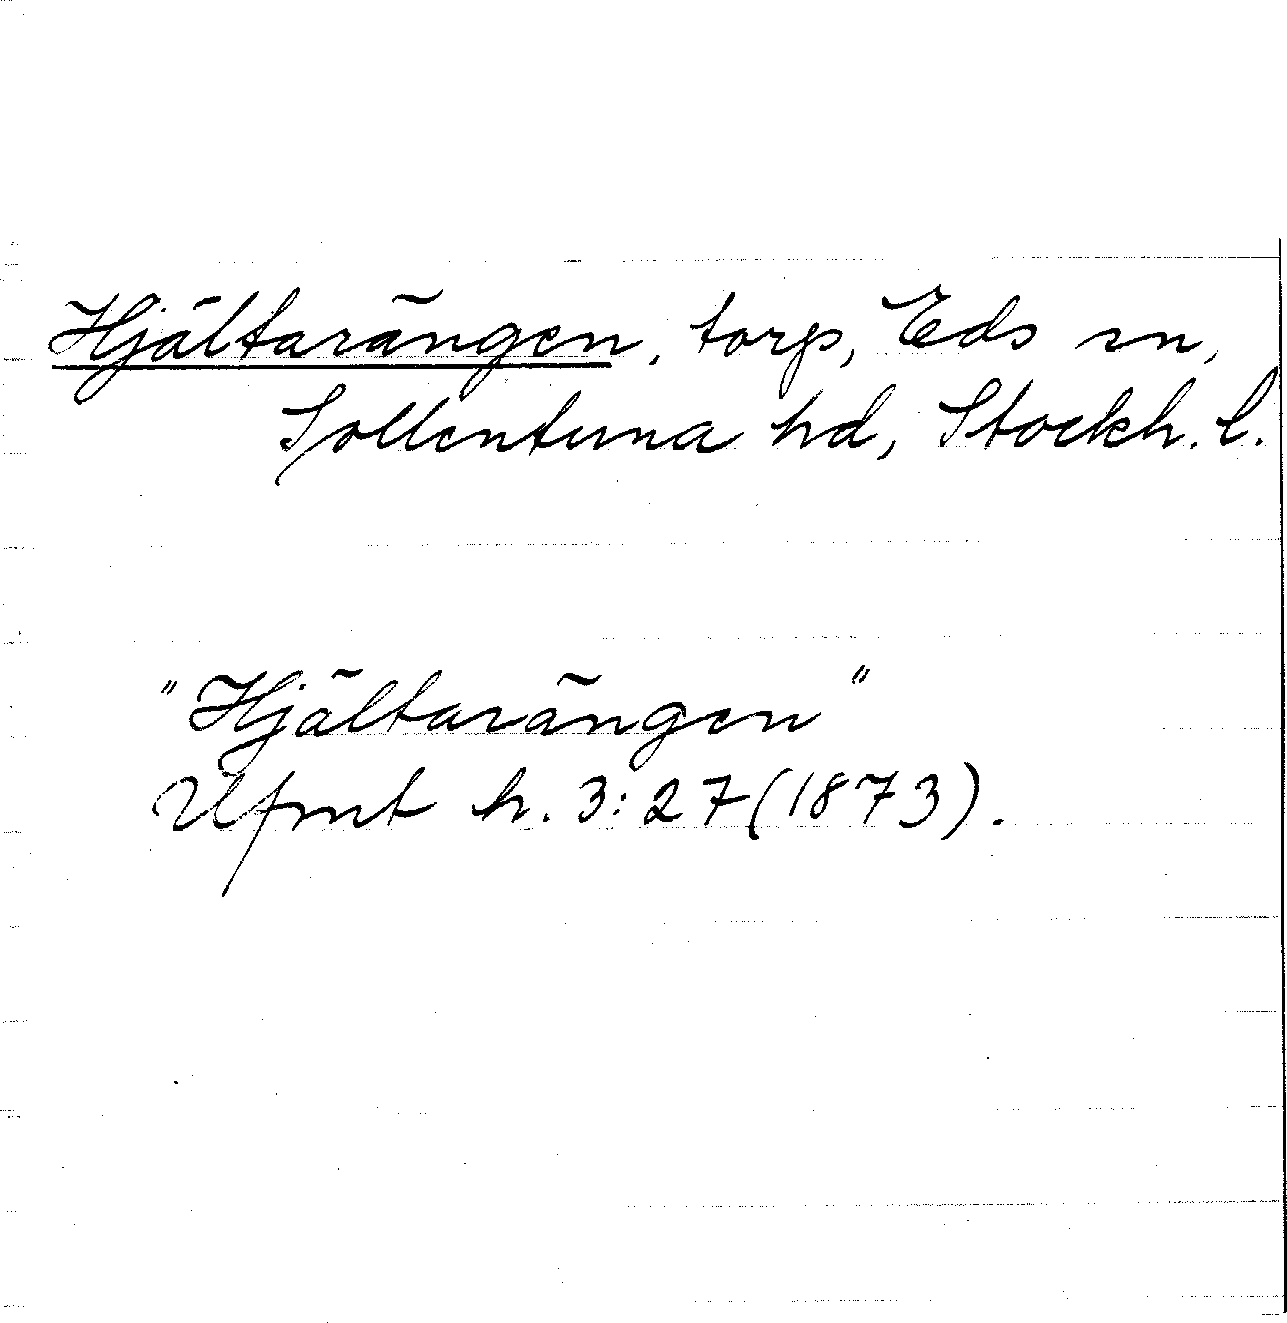 Hjältarängen, torp, Eds sn,
Sollentuna hd, Stockh. l.
"Hjältarängen"
Ufmt h. 3:27 (1873).